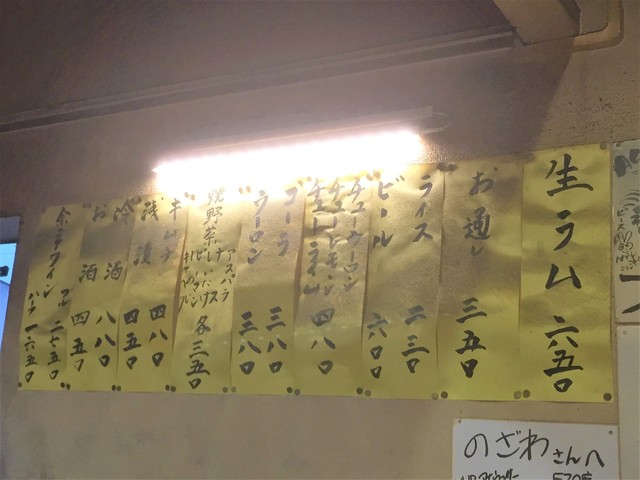 生ラム 六五〇
お通し 三五〇
ライス 二三〇
ビール 六〇〇
チューウーロン
チューレモン
チューライム 四八〇
コーラ 三八〇
ウーロン 三八〇
焼野菜
アスパラ
ナス
しいたけ
ピーマン
各 三五〇
キムチ 四八〇
浅漬 四五〇
冷酒 八八〇
お酒 四五〇
フル 二七五〇
ハーフ 一六五〇
のざわさんへ